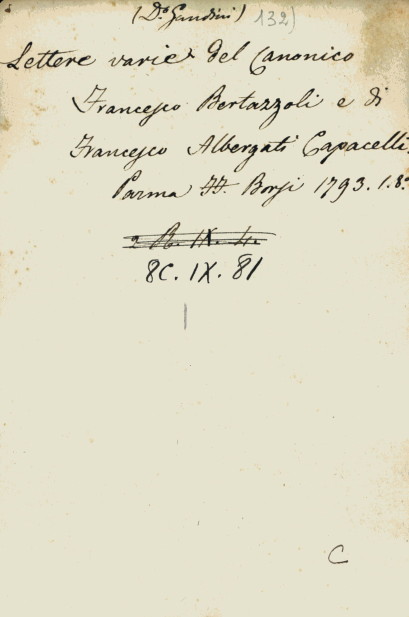 (Do Gandini) 132)
Lettere varie del Canonico
Francesco Bertazzoli e di
Francesco Albergati Capacelli,
Parma FF. Borsi 1793. 1. 8o
2 B. IX. 4.
8C. IX. 81
C